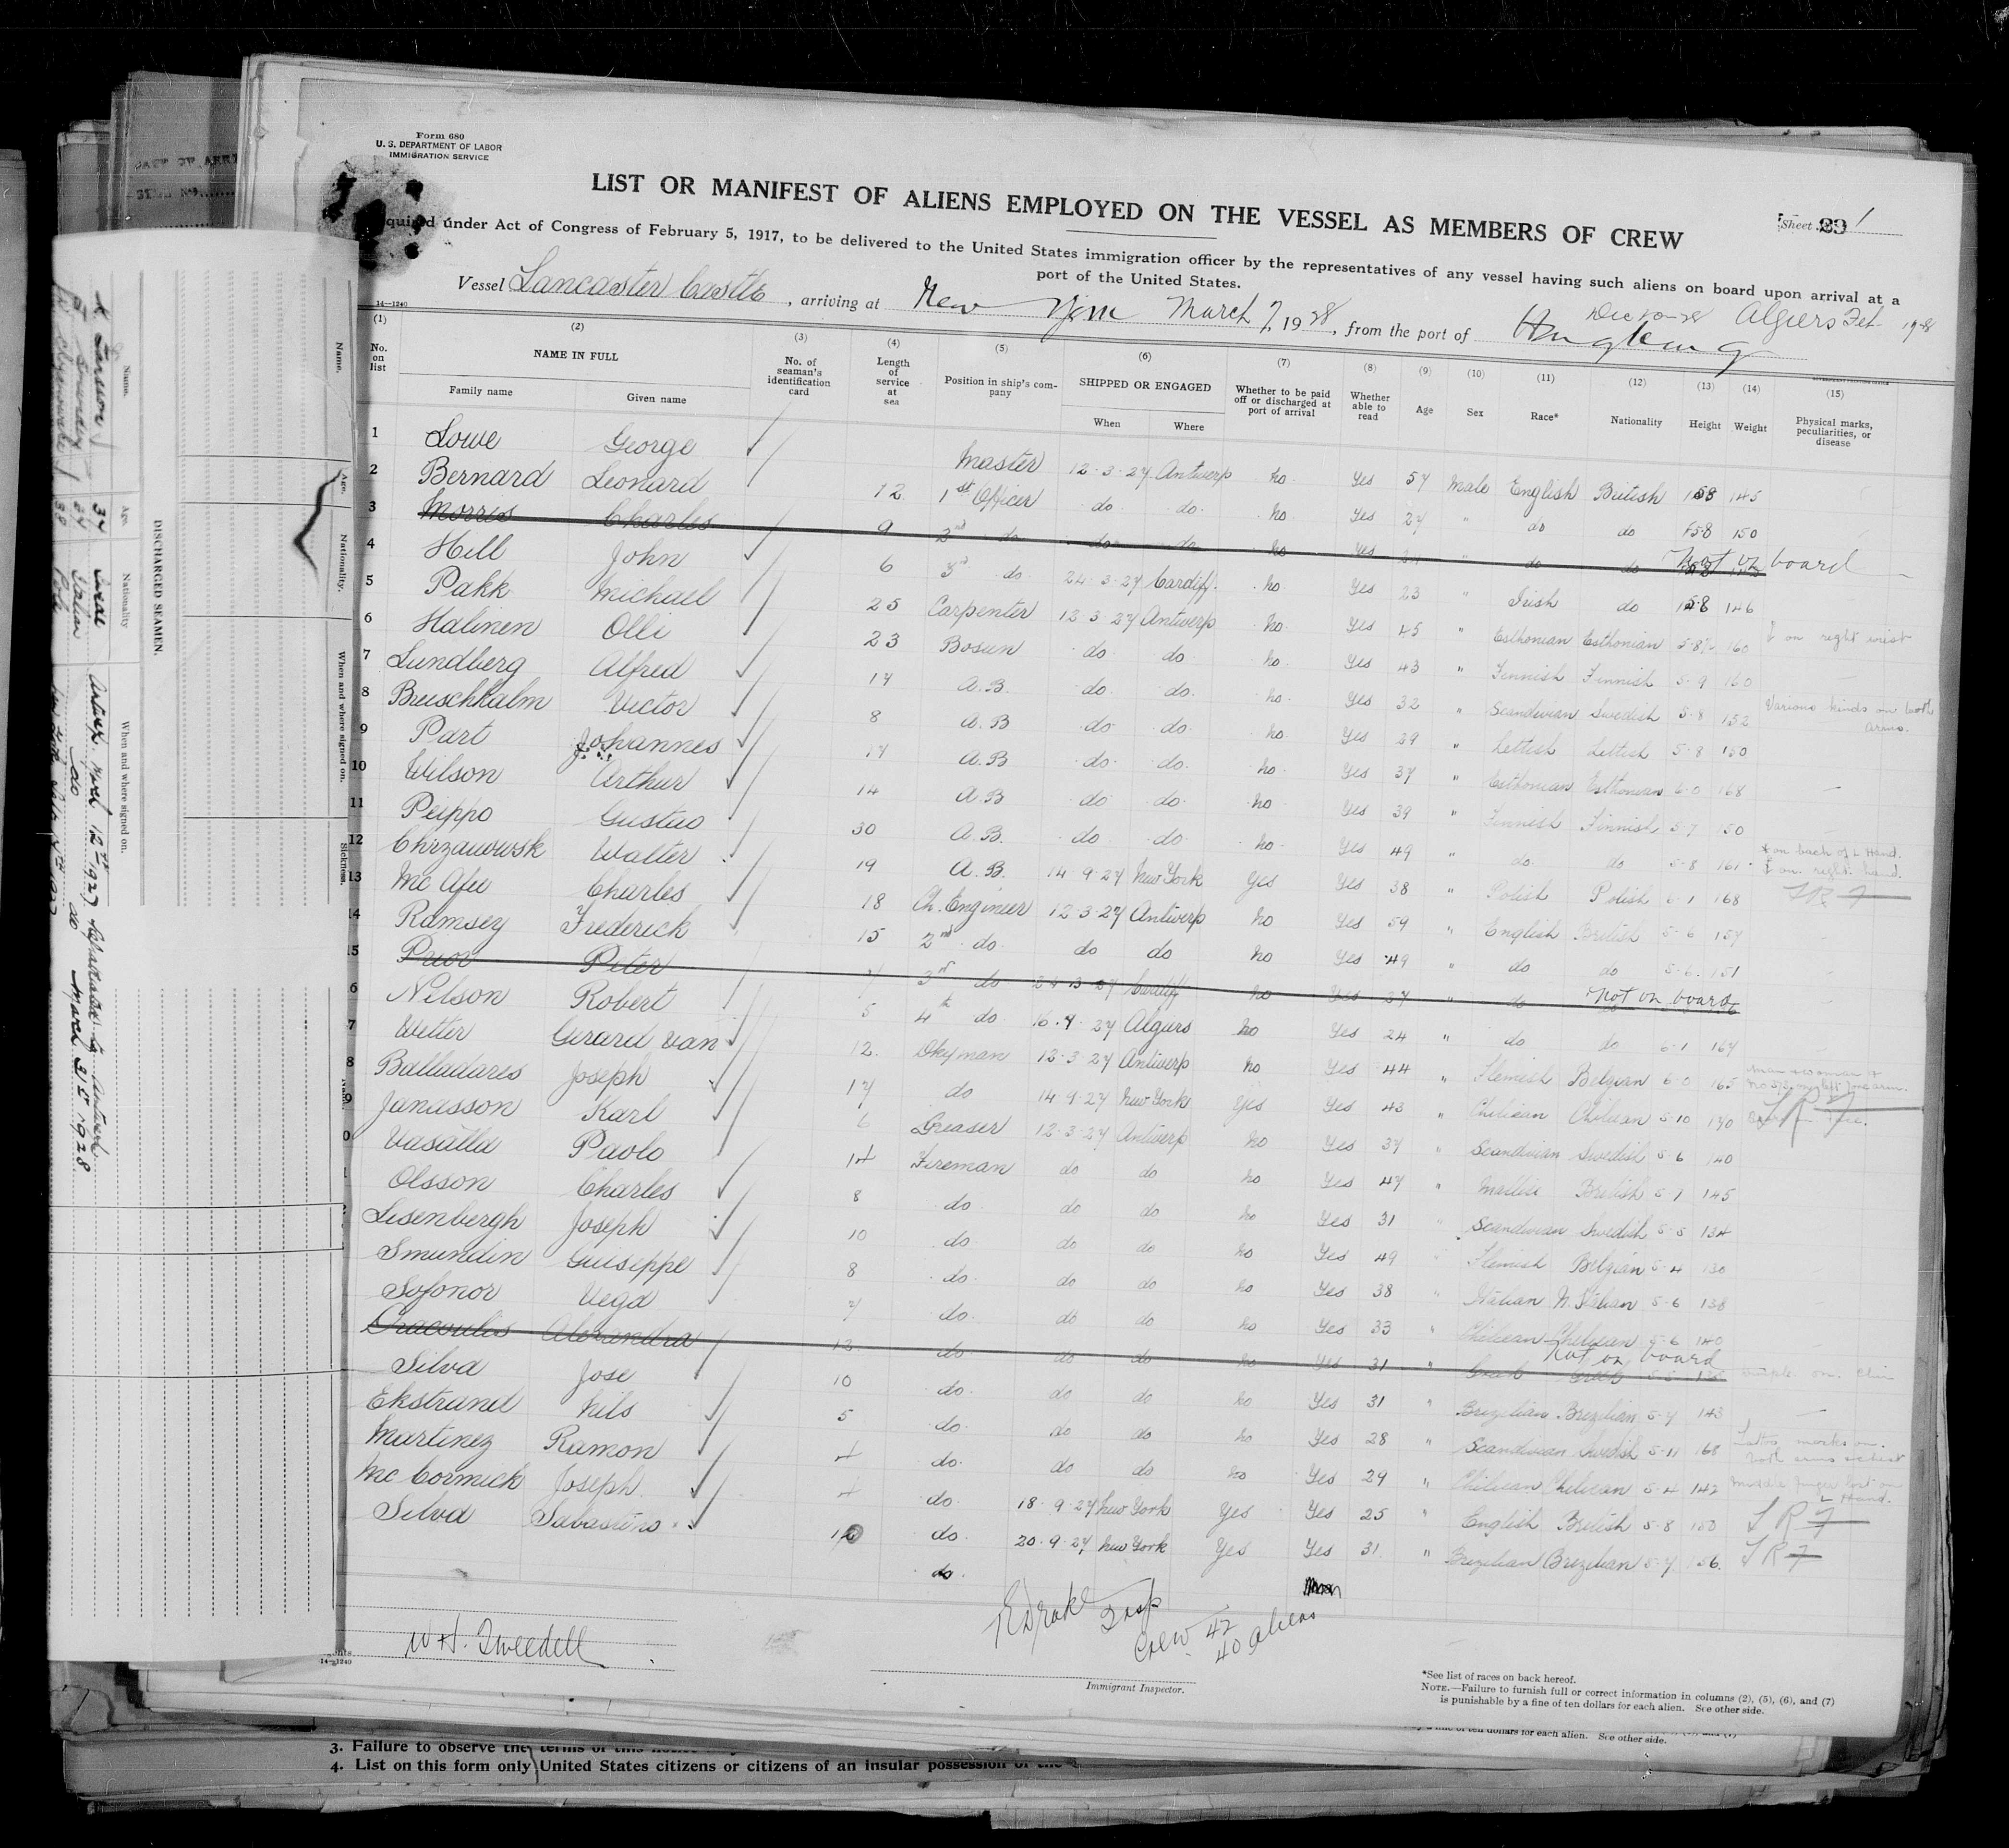 Form 680
U. S. DEPARTMENT OF LABOR
IMMIGRATION SERVICE
LIST OR MANIFEST OF ALIENS EMPLOYED ON THE VESSEL AS MEMBERS OF CREW
Sheet 1
quired under Act of Congress of February 5, 1917, to be delivered to the United States immigration officer by the representatives of any vessel having such aliens on board upon arrival at a
port of the United States.
Vessel Lancaster Castle, arriving at New York March 7, 1928, from the port of Hongkong Algiers Feb 1928
14—1240
(1) (2) (3) (4) (5) (6) (7) (8) (9) (10) (11) (12) (13) (14) (15)
No. on list NAME IN FULL No. of seaman's identification card Length of service at sea Position in ship's company SHIPPED OR ENGAGED Whether to be paid off or discharged at port of arrival Whether able to read Age Sex Race* Nationality Height Weight Physical marks, peculiarities, or disease
Family name Given name When Where
1 Lowe George Master 12-3-27 Antwerp no Yes 57 Male English British 145
2 Bernard Leonard 12 1st Officer do do no Yes 27 " do do 150
3 Morris Charles 9 2nd do do do no Yes " do do Not on board
4 Hill John 6 3rd do 24-3-27 Cardiff no Yes 23 " Irish do 146
5 Pakk Michael 25 Carpenter 12-3-27 Antwerp no Yes 45 " Esthonian Esthonian 5-8½ 160 on right wrist
6 Halinen Olli 23 Bosun do do no Yes 43 " Finnish Finnish 5-9 160
7 Lundberg Alfred 17 A.B. do do no Yes 32 " Scandivian Swedish 5-8 152 Various kinds on both arms.
8 Breischkalm Victor 8 A.B do do no Yes 39 " Lettish Lettish 5-8 150
9 Part Johannes 17 A.B do do no Yes 37 " Esthonian Esthonian 6-0 168
10 Wilson Arthur 14 A.B do do no Yes 39 " Finnish Finnish 5-7 150
11 Peippo Gustav 30 A.B. do do no Yes 49 " do do 5-8 161 on back of L Hand. on right hand.
12 Chrzauwsk Walter 19 A.B. 14-9-27 New York Yes Yes 38 " Polish Polish 6-1 168
13 Mc Afee Charles 18 Ch. Engineer 12-3-27 Antwerp no Yes 59 " English British 5-6 157
14 Ramsey Frederick 15 2nd do do do no Yes 49 " do do 5-6 151
15 Prior Peter 7 3rd do 24-3-27 Cardiff no Yes 37 " do Not on board
6 Nelson Robert 5 4th do Algiers no Yes 24 " do do 6-1 167
7 Wetter Gerard van 12 Dkyman 12-3-27 Antwerp no Yes 44 " Flemish Belgian 6-0 165 Man & woman on left forearm.
8 Balladares Joseph 17 do 14-9-27 New York Yes Yes 43 " Chilican Chilican 5-10 170
9 Janasson Karl 6 Greaser 12-3-27 Antwerp no Yes 37 " Scandivian Swedish 5-6 140
0 Vasalla Paolo 14 Fireman do do no Yes 47 " Maltese British 5-7 145
1 Olsson Charles 8 do do do no Yes 31 " Scandivian Swedish 5-5 134
Lisenbergh Joseph 10 do do do no Yes 49 " Flemish Belgian 5-4 130
Smundin Guiseppe 8 do do do no Yes 38 " Italian N. Italian 5-6 138
Sofonor Vega 7 do do do no Yes 33 " Chilican Chilican 5-6 140
Dracoulis Alexandra 12 do do do no Yes 31 " Greek Greek Not on board
Silva Jose 10 do do do no Yes 31 " Brezilian Brezilian 5-7 143
Ekstrand Nils 5 do do do no Yes 28 " Scandivian Swedish 5-11 168 Tattoo marks on both arms & chest
Martinez Ramon 4 do do do no Yes 29 " Chilican Chilican 5-4 142 Middle finger lost on L Hand.
Mc Cormick Joseph 4 do 18-9-27 New York Yes Yes 25 " English British 5-8 150
Silva Sabastino 10 do 20-9-27 New York Yes Yes 31 " Brezilian Brezilian 5-7 156
do
W H. Tweedell
R Drake Insp
Crew 42
40 Aliens
Immigrant Inspector.
14—1240
*See list of races on back hereof.
NOTE.—Failure to furnish full or correct information in columns (2), (5), (6), and (7)
is punishable by a fine of ten dollars for each alien. See other side.
of ten dollars for each alien. See other side.
3. Failure to observe the terms of this
4. List on this form only United States citizens or citizens of an insular possession of the
DISCHARGED SEAMEN.
Name. Age. Nationality When and where signed on.
Larson 34
Italian
38 Pole
Name. Age. Nationality. When and where signed on. Sickness.